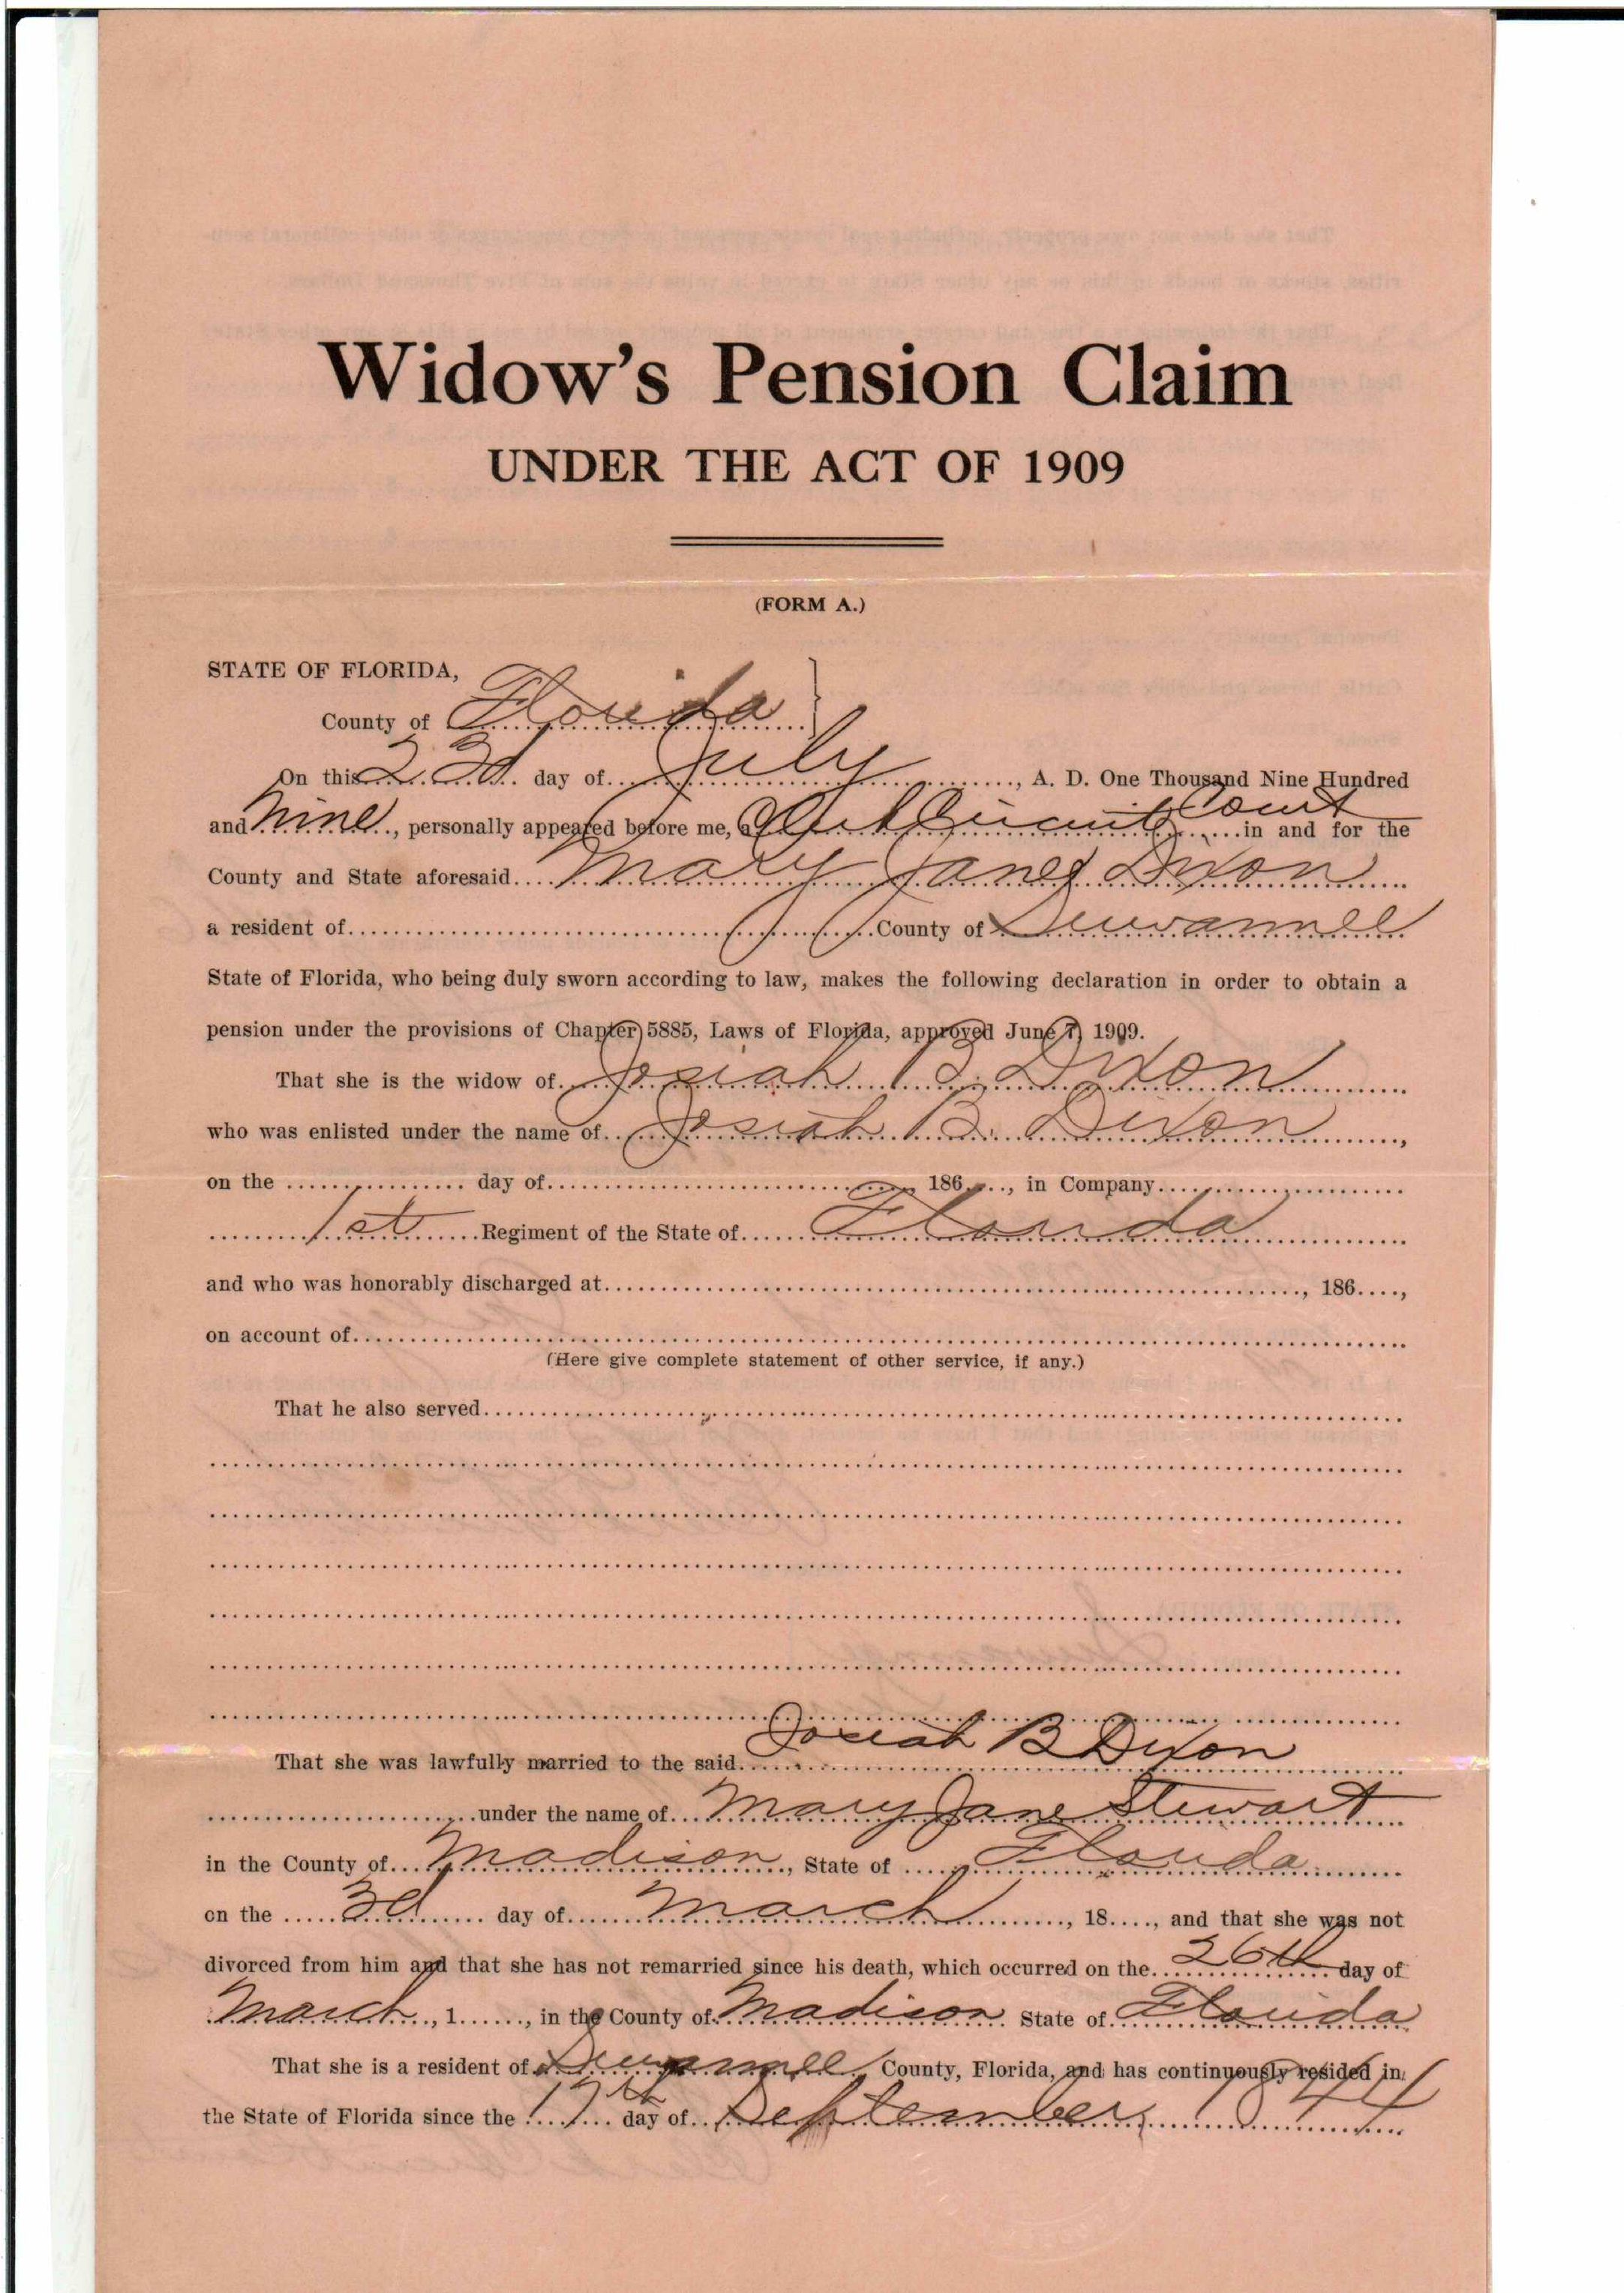 Widow's Pension Claim
UNDER THE ACT OF 1909
(FORM A.)
STATE OF FLORIDA,
County of Florida
On this 23d day of July, A. D. One Thousand Nine Hundred
and Nine, personally appeared before me, a Clerk Circuit Court in and for the
County and State aforesaid Mary Jane Dixon
a resident of County of Suwannee
State of Florida, who being duly sworn according to law, makes the following declaration in order to obtain a
pension under the provisions of Chapter 5885, Laws of Florida, approved June 7, 1909.
That she is the widow of Josiah B. Dixon
who was enlisted under the name of Josiah B. Dixon,
on the day of 186, in Company
1st Regiment of the State of Florida
and who was honorably discharged at , 186,
on account of
(Here give complete statement of other service, if any.)
That he also served
That she was lawfully married to the said Josiah B Dixon
under the name of Mary Jane Stewart
in the County of Madison, State of Florida
on the 3d day of March, 18, and that she was not
divorced from him and that she has not remarried since his death, which occurred on the 26th day of
March, 1, in the County of Madison State of Florida
That she is a resident of Suwannee County, Florida, and has continuously resided in
the State of Florida since the 17th day of September 1844